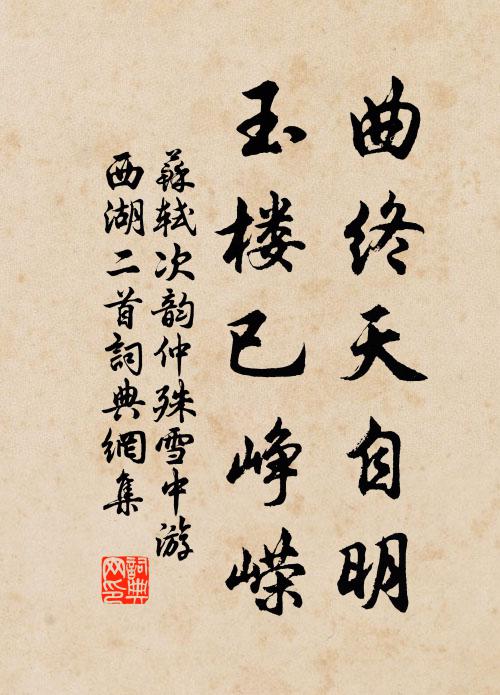 曲终天自明
玉楼已峥嵘
蘇轼次韵仲殊雪中游
西湖二首詞典網集
詞典
网印